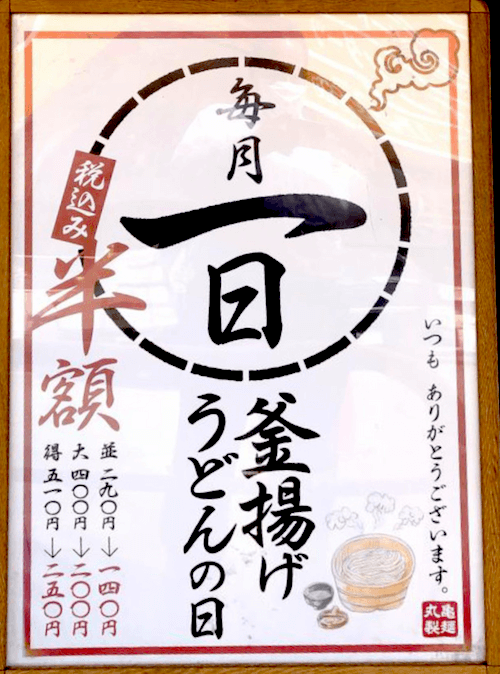 毎月
一日
釜揚げ
うどんの日
税込み
半額
並 二九〇円→一四〇円
大 四〇〇円→二〇〇円
得 五一〇円→二五〇円
いつも ありがとうございます。
丸亀
製麺